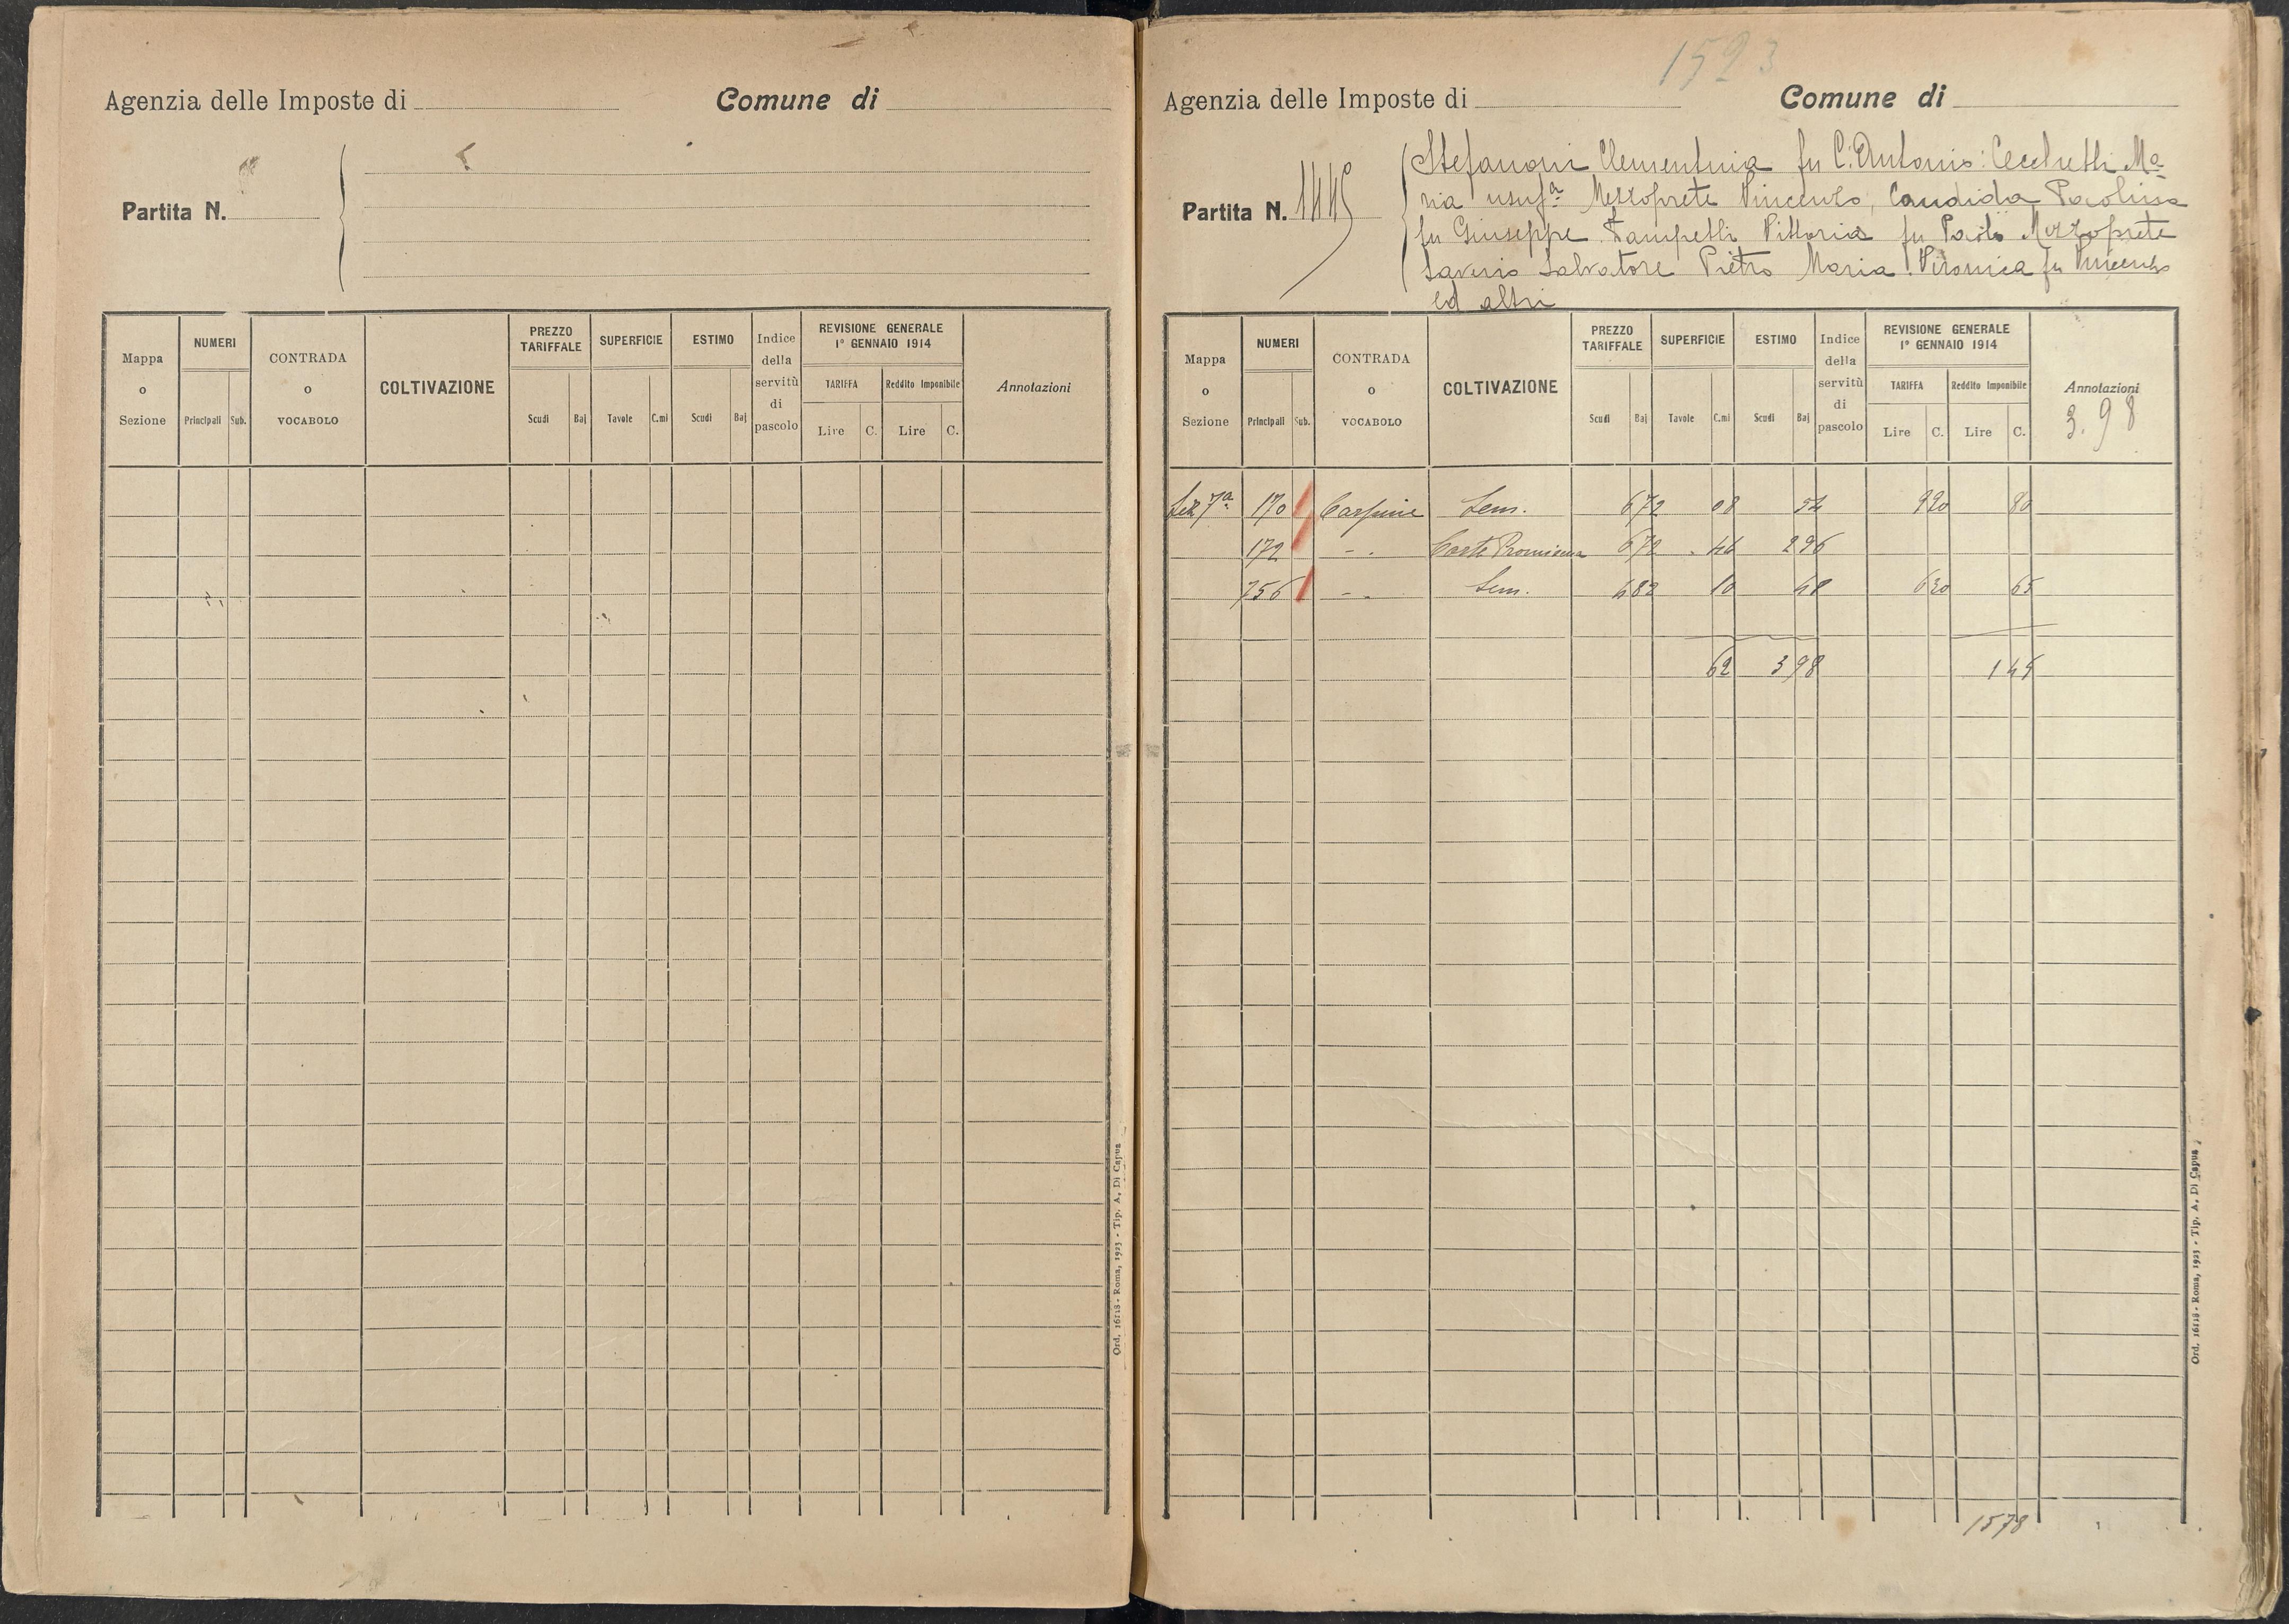 Agenzia delle Imposte di Comune di
Partita N.
Mappa o Sezione NUMERI Principali Sub. CONTRADA o VOCABOLO COLTIVAZIONE PREZZO TARIFFALE Scudi Baj SUPERFICIE Tavole C.mi ESTIMO Scudi Baj Indice della servitù di pascolo REVISIONE GENERALE 1° GENNAIO 1914 TARIFFA Lire C. Reddito Imponibile Lire C. Annotazioni
Ord. 16118 - Roma, 1923 - Tip. A. Di Capua
1523
Agenzia delle Imposte di Comune di
Partita N. 1445
Stefanoni Clementina fu C. Antonio: Cecchetti Ma-
ria usuf.a Mezzoprete Vincenzo, Candida Paolina
fu Giuseppe Vittoria fu Paolo Mezzoprete
Saverio Salvatore Pietro Maria Veronica fu Vincenzo
ed altri
Mappa o Sezione NUMERI Principali Sub. CONTRADA o VOCABOLO COLTIVAZIONE PREZZO TARIFFALE Scudi Baj SUPERFICIE Tavole C.mi ESTIMO Scudi Baj Indice della servitù di pascolo REVISIONE GENERALE 1° GENNAIO 1914 TARIFFA Lire C. Reddito Imponibile Lire C. Annotazioni
3.98
Sez 7a 170 Carpine Sem. 672 08 54 990 80
172 -. Corte 672 .44 296
756 -. Sem. 482 10 48 650 65
62 398 145
1578
Ord. 16118 - Roma, 1923 - Tip. A. Di Capua